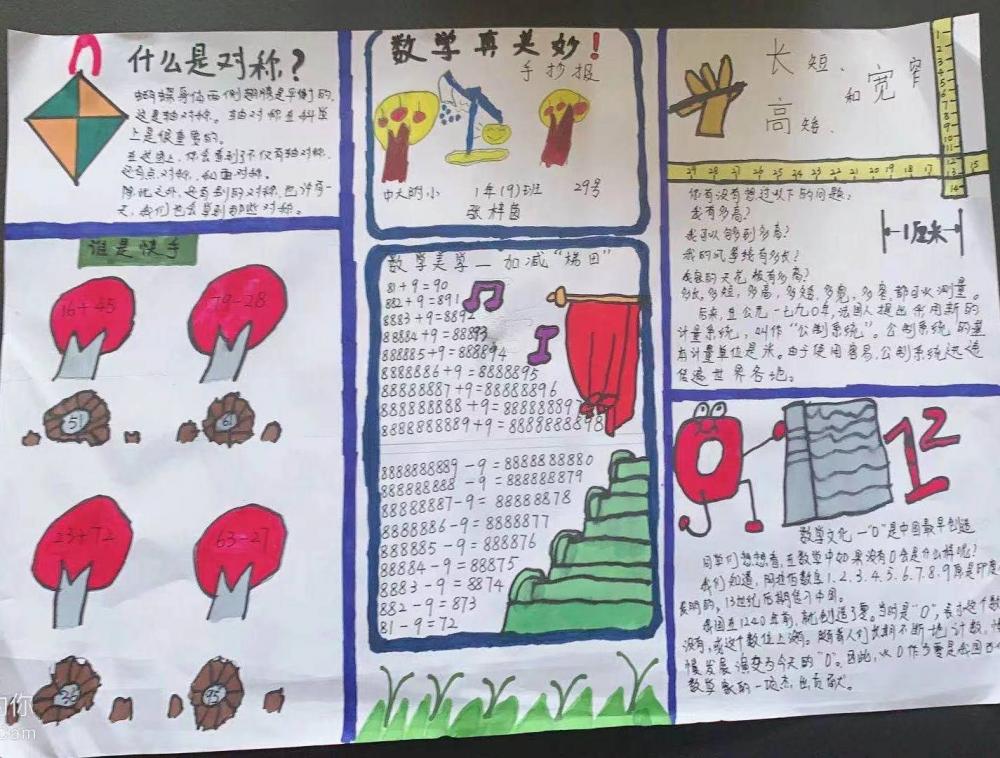 什么是对称?
蝴蝶身体两侧翅膀是平衡的,
这是轴对称。轴对称在科学
上是很重要的。
在这图上,你会看到了不仅有轴对称,
还有点对称,和面对称。
除此之外,还有别的对称,也许有一
天,我们也会学到那些对称。
谁是快手
16+45
79-28
51
61
23+72
63-27
95
数学真美妙!
手抄报
1年(9)班
29号
数学美学—加减“梯田”
81+9=90
882+9=891
8883+9=8892
88884+9=88893
888885+9=888894
8888886+9=8888895
88888887+9=88888896
888888888+9=888888897
8888888889+9=8888888898
8888888889-9=8888888880
888888888-9=888888879
88888887-9=88888878
8888886-9=8888877
888885-9=888876
88884-9=88875
8883-9=8874
882-9=873
81-9=72
长短、
和宽窄
高矮.
1
2
3
4
5
6
7
8
9
10
11
12
13
14
15
29 28 27 26 25 24 23 22 21 20 19 18 17
你有没有想过以下的问题:
我有多高?
我可以够到多高?
我的风筝线有多长?
我家的天花板有多高?
多长,多短,多高,多矮,多宽,多窄,都可以测量。
1厘米
后来,在公元一七九0年,法国人提出采用新的
计量系统,叫作“公制系统”。公制系统的基
本计量单位是米。由于使用容易,公制系统迅速
传遍世界各地。
0
12
数学文化—“0”是中国最早创造
同学们想想看,在数学中如果没有0会是什么样呢?
我们知道,阿拉伯数字1.2.3.4.5.6.7.8.9原是印度
发明的,13世纪后期传入中国。
我国在1240年前,就创造了零。当时是“0”,表示这个数
没有,或这个数位上没有。随着人们长期不断地计数,
慢发展演变为今天的“0”。因此,以0作为零是我国古
数学家的一项杰出贡献。